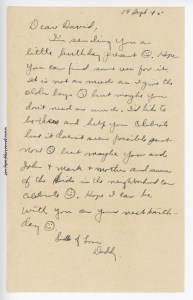 Dear David,
I'm sending you a
little birthday present ☺. Hope
you can find some use for it.
It is not as much as I give the
older boys ☹ but maybe you
don't need as much. I'd like to
be there and help you celebrate
but it doesn't seem possible just
now ☹ but maybe you and
John & Mark & mother and some
of the kids in the neighborhood can
celebrate ☺. Hope I can be
with you on your next birth-
day ☺
Lots of Love
Daddy.